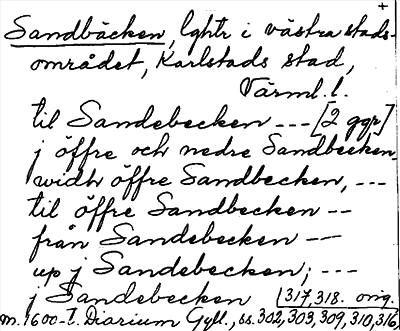 +
Sandbäcken, lghtr i västra stads-
området, Karlstads stad,
Värml. l.
til Sandebecken --- [2 ggr]
j öffre och nedre Sandbecken
widh öffre Sandbecken, ---
til öffre Sandbecken --
från Sandebecken --
up j Sandebecken; ---
j Sandebecken [317, 318. orig.
m. 1600-t. Diarium Gyll., ss. 302, 303, 309, 310, 316,